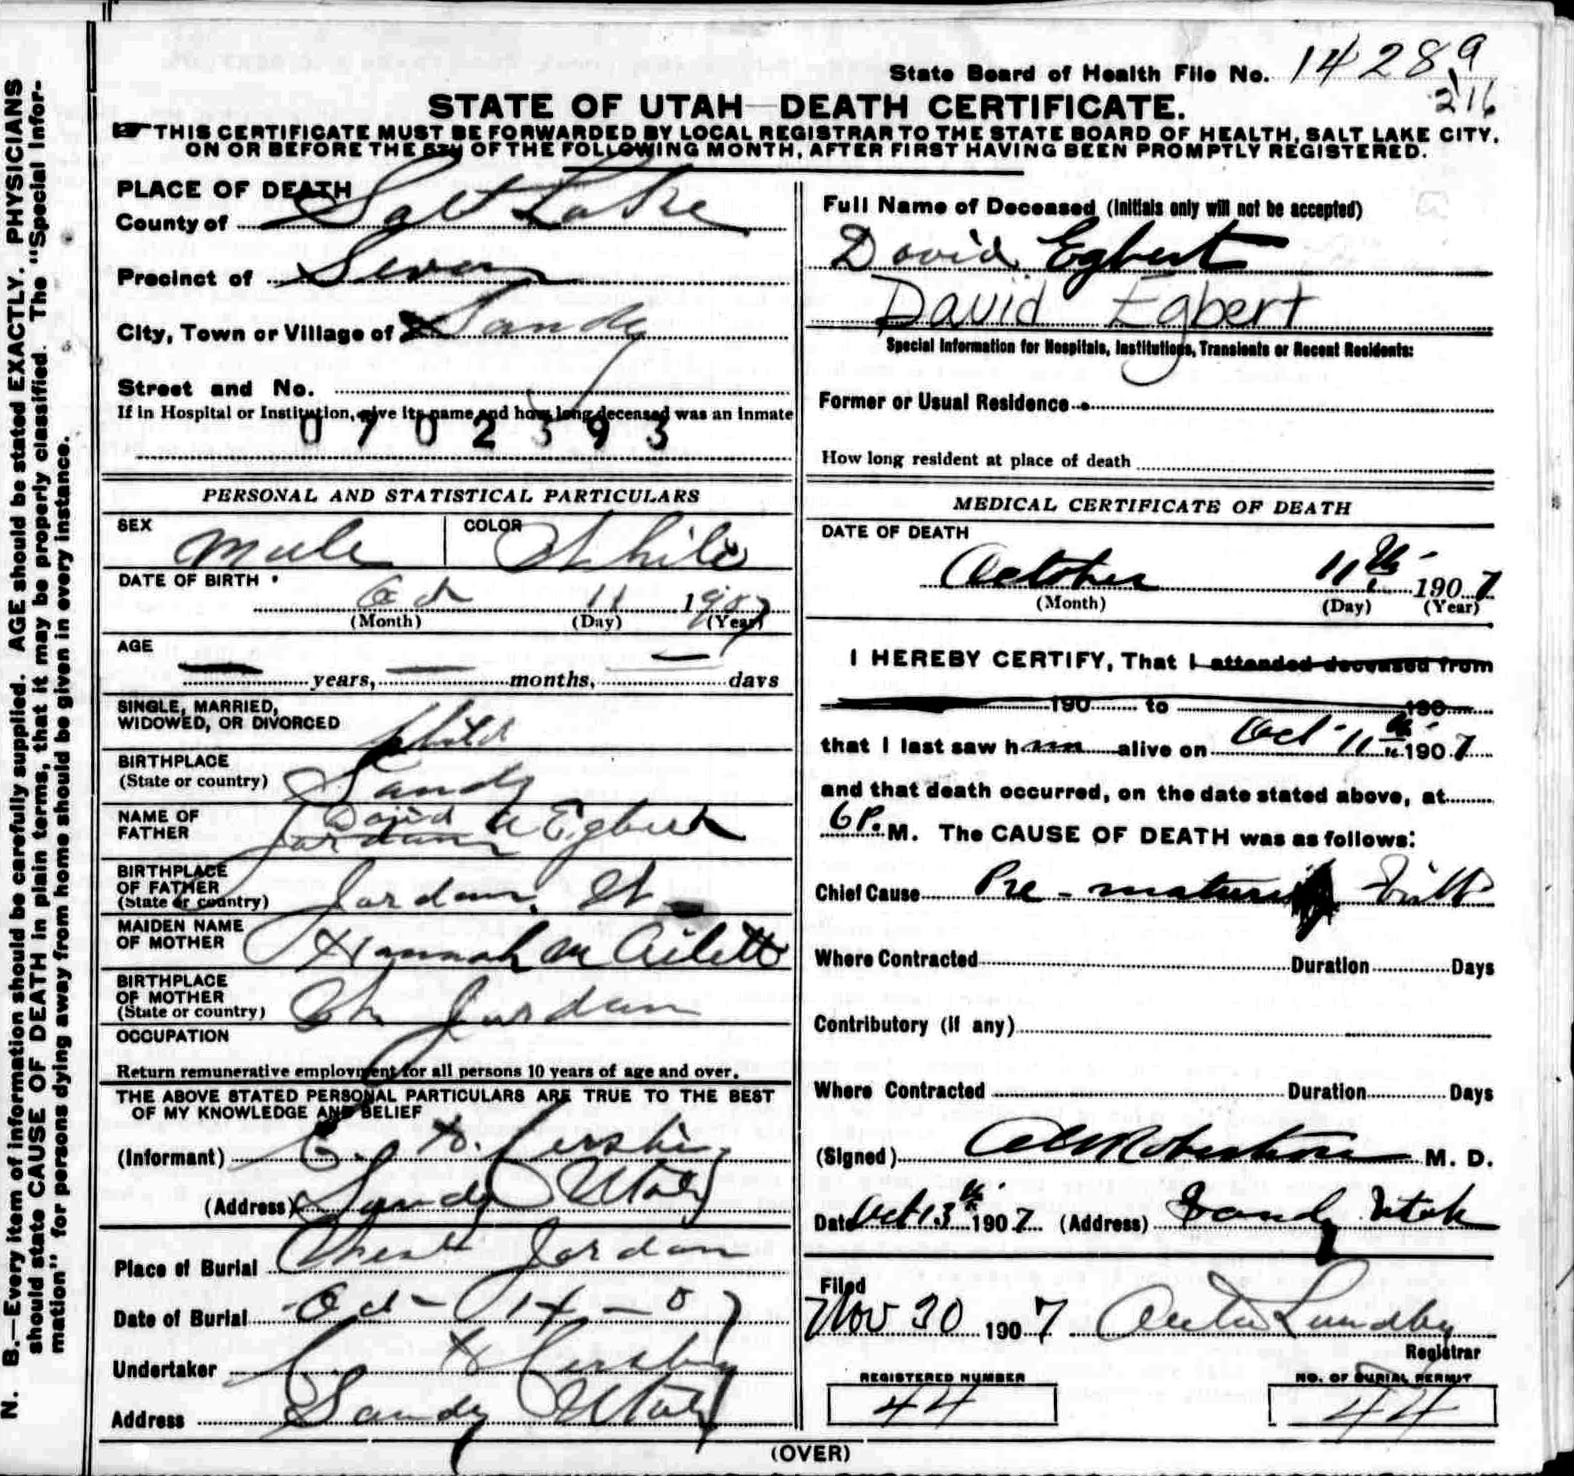 State Board of Health File No. 14289
216
STATE OF UTAH—DEATH CERTIFICATE.
THIS CERTIFICATE MUST BE FORWARDED BY LOCAL REGISTRAR TO THE STATE BOARD OF HEALTH, SALT LAKE CITY,
ON OR BEFORE THE 5TH OF THE FOLLOWING MONTH, AFTER FIRST HAVING BEEN PROMPTLY REGISTERED.
N. B.—Every item of information should be carefully supplied. AGE should be stated EXACTLY. PHYSICIANS
should state CAUSE OF DEATH in plain terms, that it may be properly classified. The "Special Infor-
mation" for persons dying away from home should be given in every instance.
PLACE OF DEATH
County of Salt Lake
Precinct of Seven
City, Town or Village of Sandy
Street and No.
If in Hospital or Institution, give its name and how long deceased was an inmate
0702393
PERSONAL AND STATISTICAL PARTICULARS
SEX Male COLOR White
DATE OF BIRTH Oct 11 1907
(Month) (Day) (Year)
AGE
— years, — months, — days
SINGLE, MARRIED,
WIDOWED, OR DIVORCED Child
BIRTHPLACE
(State or country) Sandy
NAME OF
FATHER David A Egbert
Jordan
BIRTHPLACE
OF FATHER
(State or country) Jordan, Ut
MAIDEN NAME
OF MOTHER Hannah M
BIRTHPLACE
OF MOTHER
(State or country) Jordan
OCCUPATION
Return remunerative employment for all persons 10 years of age and over.
THE ABOVE STATED PERSONAL PARTICULARS ARE TRUE TO THE BEST
OF MY KNOWLEDGE AND BELIEF
(Informant)
(Address) Sandy Utah
Place of Burial West Jordan
Date of Burial Oct - 14 - 07
Undertaker
Address Sandy Utah
Full Name of Deceased (Initials only will not be accepted)
David Egbert
David Egbert
Special Information for Hospitals, Institutions, Transients or Recent Residents:
Former or Usual Residence
How long resident at place of death
MEDICAL CERTIFICATE OF DEATH
DATE OF DEATH
October 11th 1907
(Month) (Day) (Year)
I HEREBY CERTIFY, That I attended deceased from
190 to 190
that I last saw him alive on Oct 11th 1907
and that death occurred, on the date stated above, at
6 P. M. The CAUSE OF DEATH was as follows:
Chief Cause Pre-mature Birth
Where Contracted Duration Days
Contributory (if any)
Where Contracted Duration Days
(Signed) Robertson M. D.
Date Oct 13th 1907 (Address) Sandy Utah
Filed
Nov 30 1907 Lundby
Registrar
REGISTERED NUMBER
44
NO. OF BURIAL PERMIT
44
(OVER)